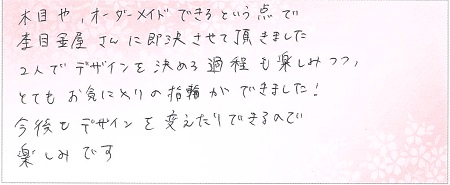 木目や、オーダーメイドできるという点で
杢目金屋さんに即決させて頂きました
2人でデザインを決める過程も楽しみつつ、
とてもお気に入りの指輪ができました!
今後もデザインを変えたりできるので
楽しみです